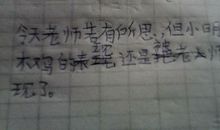 今天老师若有所思，但小明
木鸡的表现还是被老师
现了。